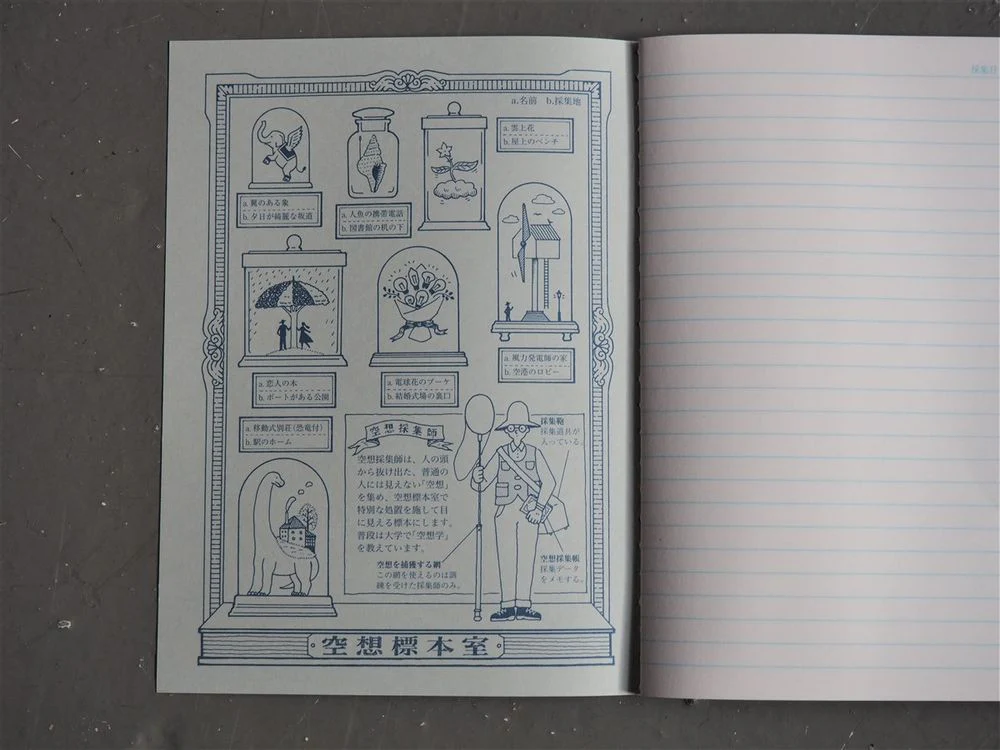 a.名前 b.採集地
a.翼のある象
b.夕日が綺麗な坂道
a.人魚の携帯電話
b.図書館の机の下
a.雲上花
b.屋上のベンチ
a.恋人の木
b.ボートがある公園
a.電球花のブーケ
b.結婚式場の裏口
a.風力発電師の家
b.空港のロビー
a.移動式別荘(恐竜付)
b.駅のホーム
空想採集師
空想採集師は、人の頭
から抜け出た、普通の
人には見えない「空想」
を集め、空想標本室で
特別な処置を施して目
に見える標本にします。
普段は大学で「空想学」
を教えています。
空想を捕獲する網
この網を使えるのは訓
練を受けた採集師のみ。
採集鞄
採集道具が
入っている。
空想採集帳
採集データ
をメモする。
空想標本室
採集日